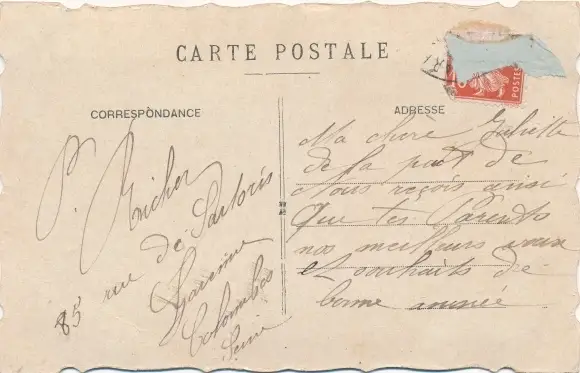 CARTE POSTALE
POSTES
CORRESPONDANCE
ADRESSE
P. Richer
85 rue de Sartoris
Garenne
Colombes
Seine
Ma chere Juliette
de la part de
Nous reçois ainsi
que tes Parents
nos meilleurs vœux
et souhaits de
bonne année